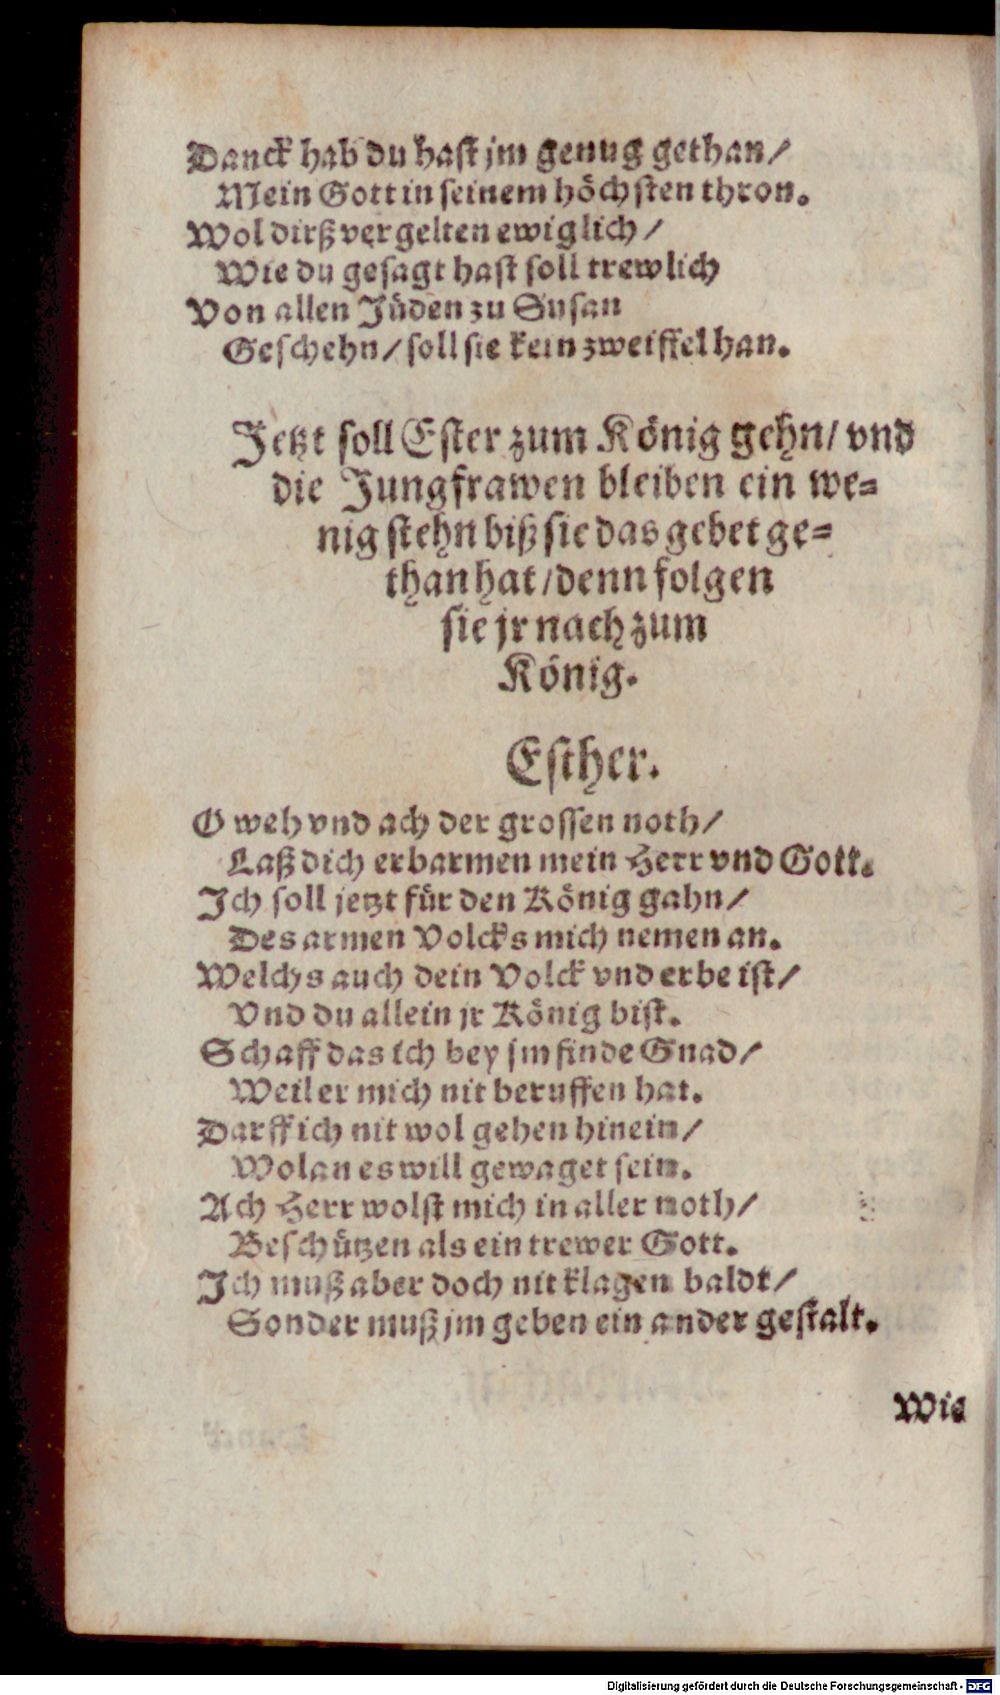 Danck hab du hast jm genug gethan/
Mein Gott in seinem höchsten thron.
Wol dirß vergelten ewiglich/
Wie du gesagt hast soll trewlich
Von allen Jüden zu Susan
Geschehn/ soll sie kein zweiffel han.
Jetzt soll Ester zum König gehn/ vnd
die Jungfrawen bleiben ein we=
nig stehn biß sie das gebet ge=
than hat/ denn folgen
sie jr nach zum
König.
Esther.
O weh vnd ach der grossen noth/
Laß dich erbarmen mein Herr vnd Gott.
Ich soll jetzt für den König gahn/
Des armen Volcks mich nemen an.
Welchs auch dein Volck vnd erbe ist/
Vnd du allein jr König bist.
Schaff das ich bey jm finde Gnad/
Weil er mich nit beruffen hat.
Darff ich nit wol gehen hinein/
Wolan es will gewaget sein.
Ach Herr wolst mich in aller noth/
Beschützen als ein trewer Gott.
Ich muß aber doch nit klagen baldt/
Sonder muß jm geben ein ander gestalt.
Wie
Digitalisierung gefördert durch die Deutsche Forschungsgemeinschaft - DFG